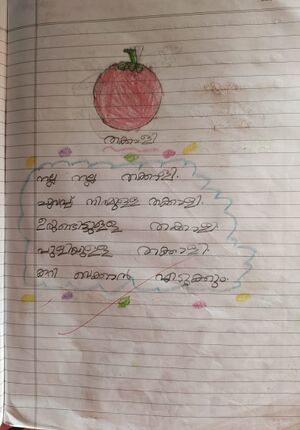 തക്കാളി
നല്ല നല്ല തക്കാളി.
ചുവപ്പ് നിറമുള്ള തക്കാളി.
ഉരുണ്ടിട്ടുള്ള തക്കാളി.
പുളിയുള്ള തക്കാളി.
കറി വെക്കാൻ എടുക്കും.